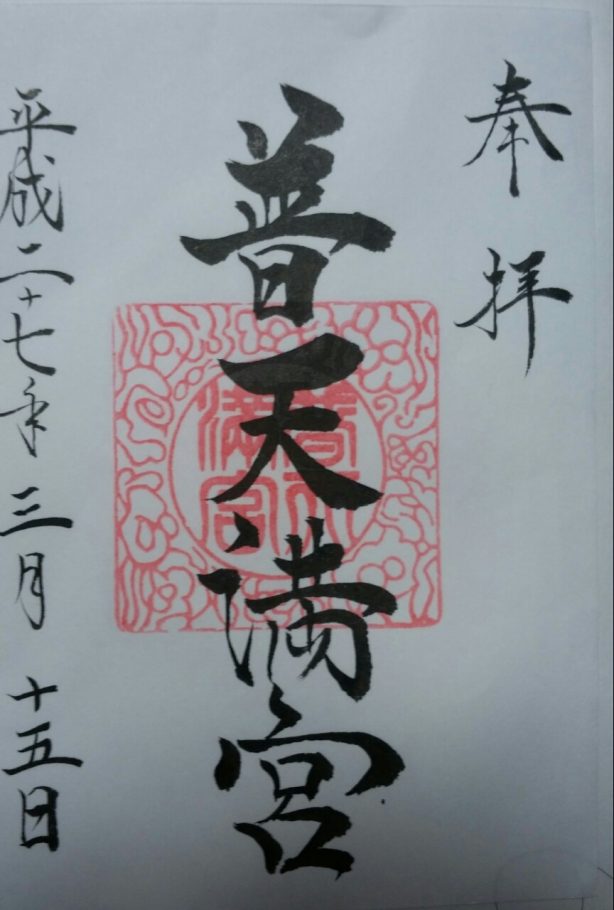 奉拝
普天満宮
普天満宮
平成二十七年三月十五日